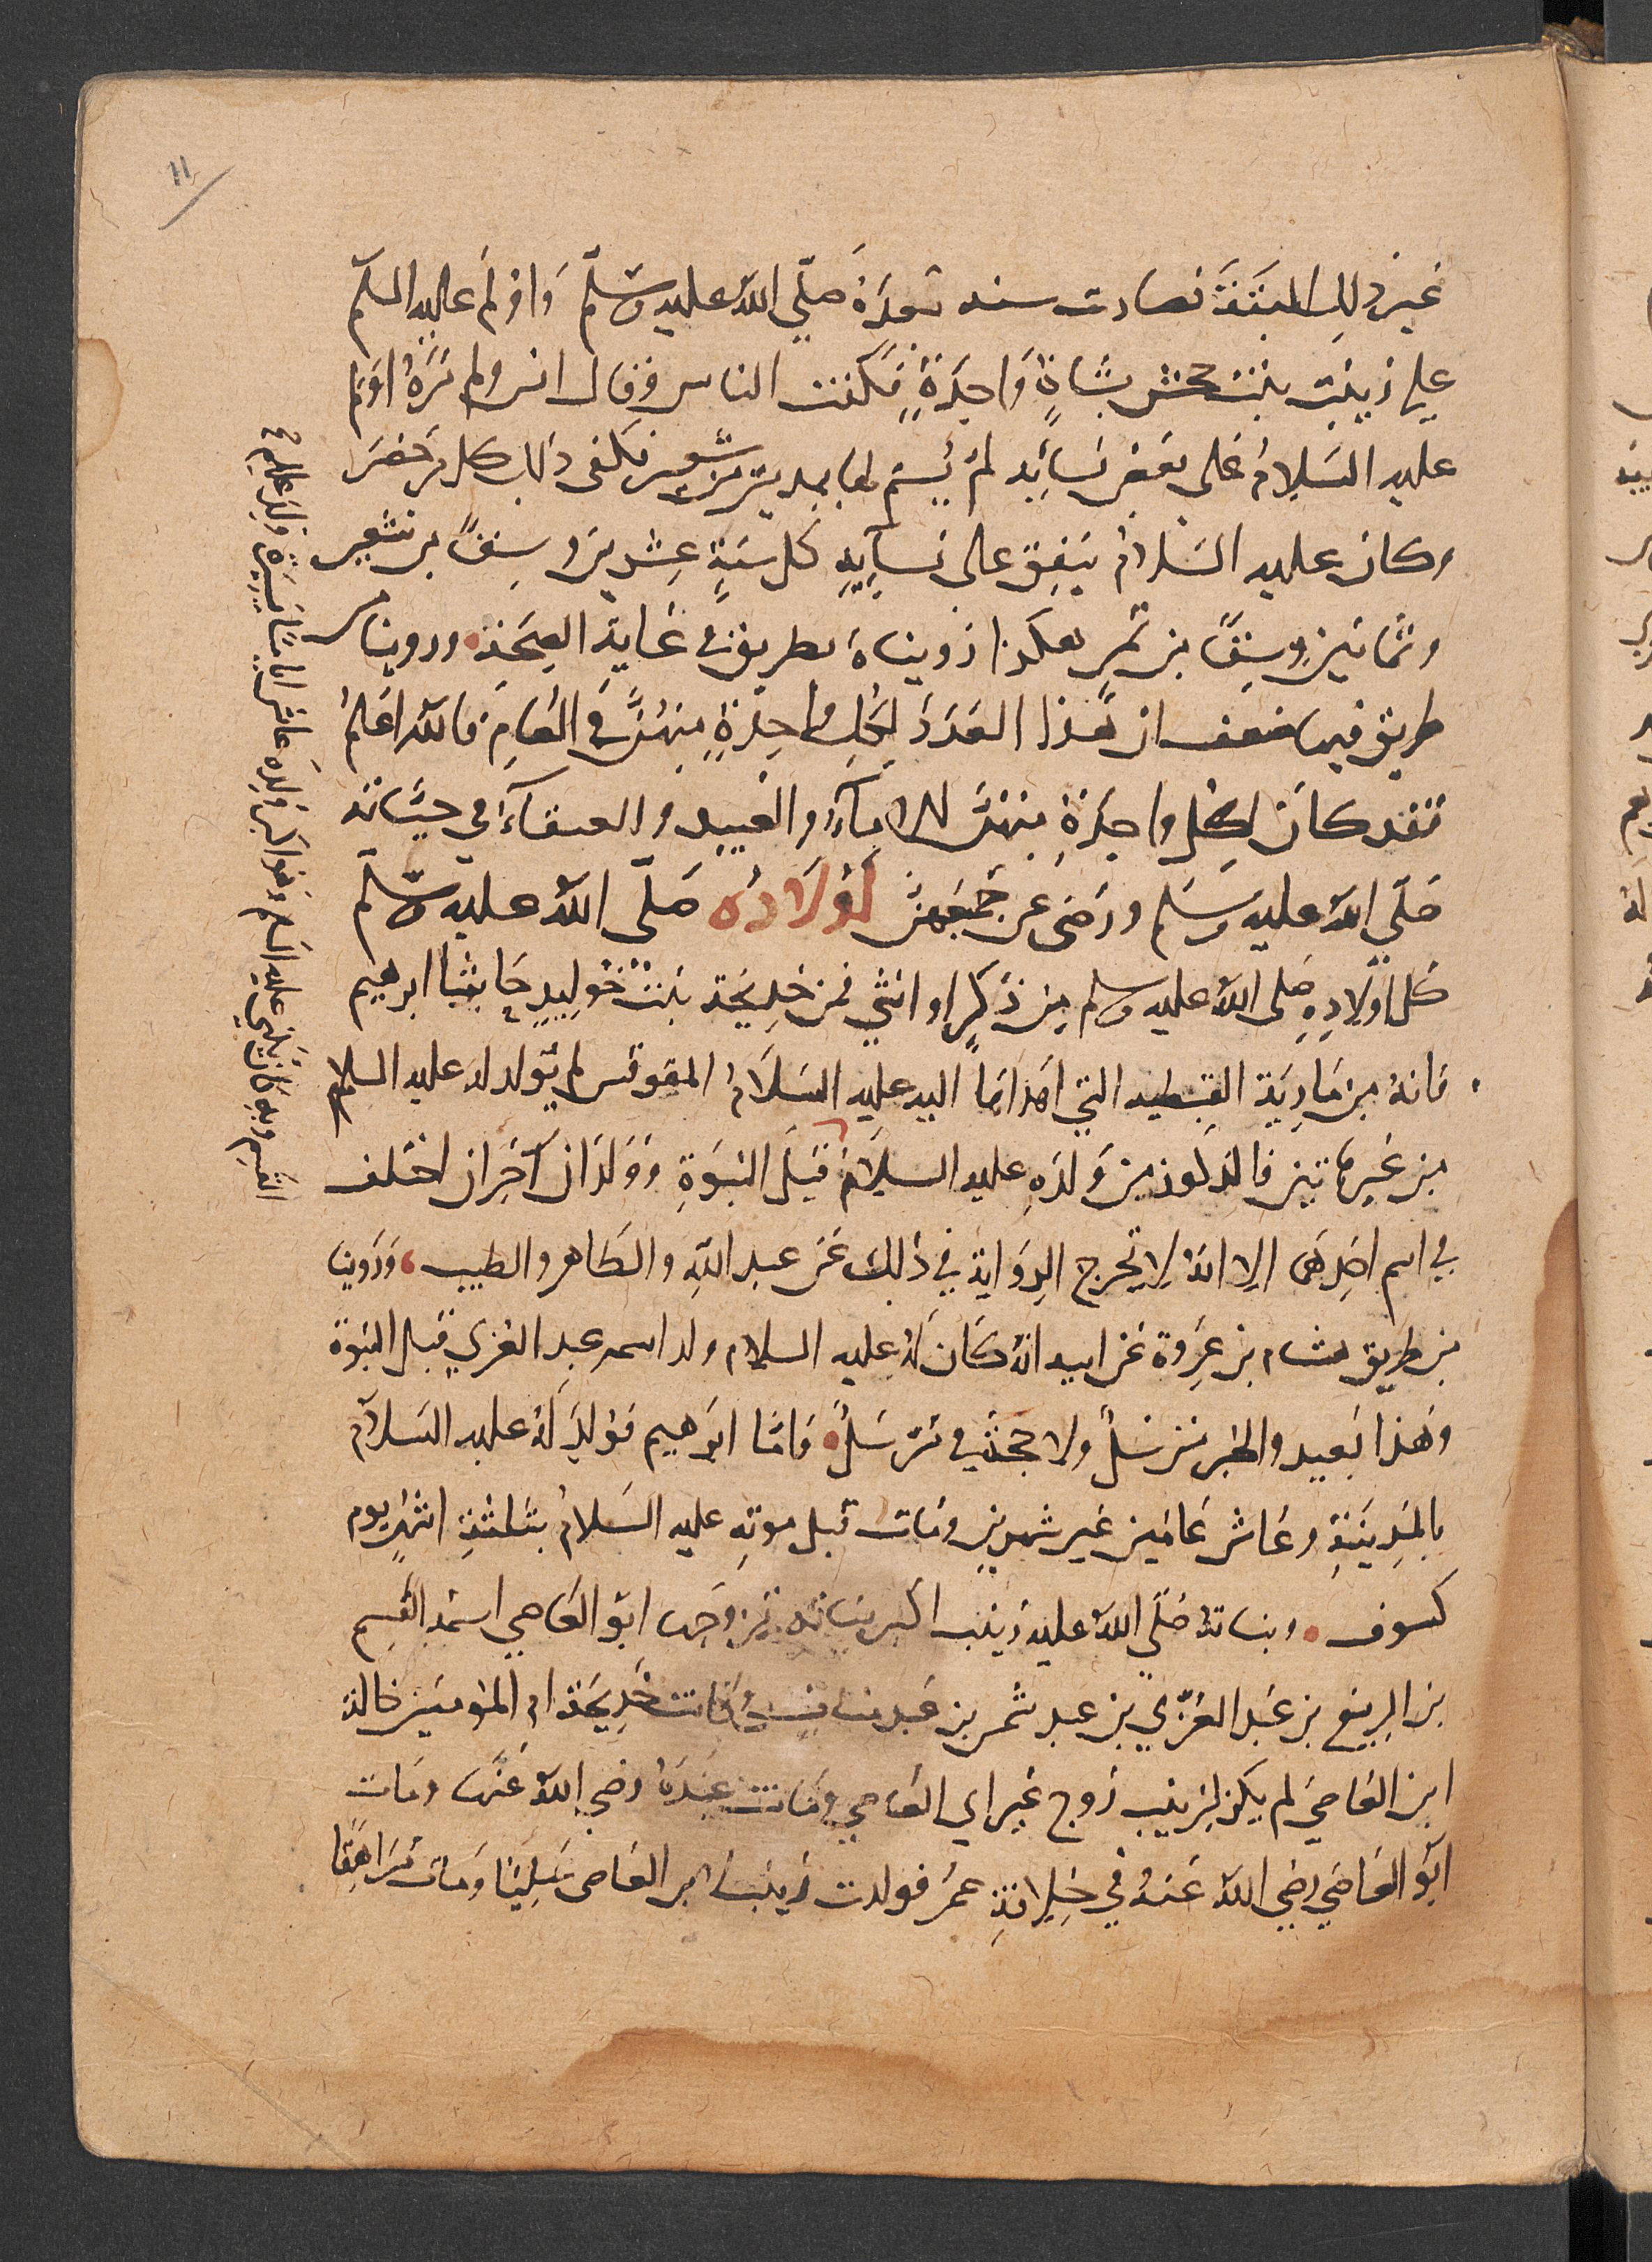 11
غير ذلِك المبتغَة فصارت سنه بعدَهُ صلّى اللهُ عليه وسّلم وَاوْلمَ عليه السلم
على زينَبَ بنت جحش بشاةٍ وَاحِدَةٍ فكفت الناس وقال انس ولم نرَهُ اوْلم
عليه السَلامُ على بعضِ نسَائِه لم يُسَم لها بمدين من شعير فكفى ذلك كل من حَضَر
وكان عليه السَلامُ يُنفِق على نسآيِهِ كل سَنَةٍ عِشرين وسِقًا من شعير
وثمانين وِسقًا من تمرٍ هكذا رَويناهُ بطريقٍ في غايَةِ الصِحَة وروينا من
طريق فيها ضعف ان هَذا العَدَدَ لكلِ واحِدَةٍ منهُنّ في العَامِ فالله اعلمُ
فقد كانَ لكلِ واحِدَةٍ منهنّ الامآءُ والعَبيد والعتقآءُ في حيَاته
صَلّى اللهُ عليه وسَلم ورَضى عن جَميعهنّ اوْلاَدُه صَلّى اللهُ عليه وسّلم
كل اوْلادِهِ صَلى اللهُ عليه وسلم من ذَكرٍ او انثى فمن خدِيجَة بنت خوَيلِدٍ حَاشا ابرهيم
فانهُ من مَارِيَة القبطيه التي اهداهَا اليه عليه السَلاَمُ المقوقس لم يُولد له عليه السلام
من غيرهَاتين فالذكور من وَلدِهِ عليه السلامُ قبل النبَوةِ وَوَلدَانِ آخَران اختلف
في اسم احَدِهَا الا انهُ لا تخرج الرِوَاية في ذلك عَن عبد الله والطَاهر والطيب وَرَوينا
من طريق هشام بن عروة عَن ابيه انهُ كَانَ لهُ عليه السلام ولد اسمه عبد العزى قبل النبَوة
وَهَذا بَعيد والخبر مُرسَلٌ ولا حجة في مُرسَل وَامّا ابرَهيم فوُلدَ لهُ عليه السَلاَم
بالمَدِينَةِ وعَاش عَامَين غير شهرين ومَات قبل موتهِ عليه السَلامُ بثلثَةِ اشهُر يوم
كسوف وبناته صَلّى اللهُ عليه زينب اكبر بناته تزوجَها ابو العَاصِي اسمه القسم
بن الربيع بن عَبد العُزّى بن عبد شمس بن عبد مناف وكانت خَدِيجَة ام المومنين خالة
ابن العَاصي لم يكن لزينب زوج غير ابي العَاصي ومَاتت عِندَهُ رضي اللهُ عَنها ومَات
ابو العَاصي رضي اللهُ عَنهُ في خِلافةِ عمَر فولدت زينب من العَاصى عَليًا وَمَات مُرَاهِقا